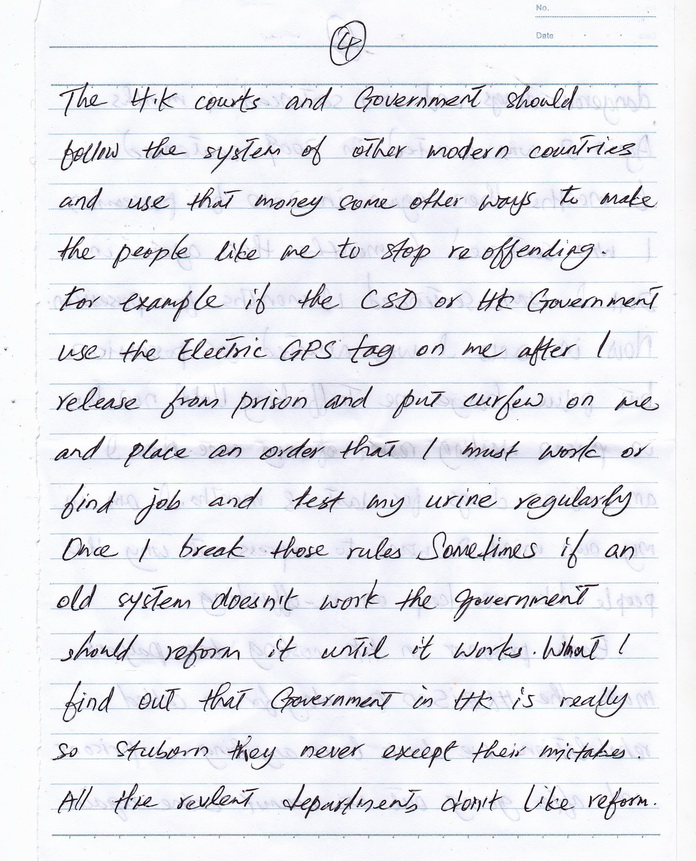 No.
Date
4
The H.K courts and Government should
follow the system of other modern countries
and use that money some other ways to make
the people like me to stop re offending.
For example if the CSD or HK Government
use the Electric GPS tag on me after I
release from prison and put curfew on me
and place an order that I must work or
find job and test my urine regularly
Once I break those rules Sometimes if an
old system doesn't work the government
should reform it until it works. What I
find out that Government in HK is really
so stuborn they never except their mistakes.
All the revlent departments don't like reform.